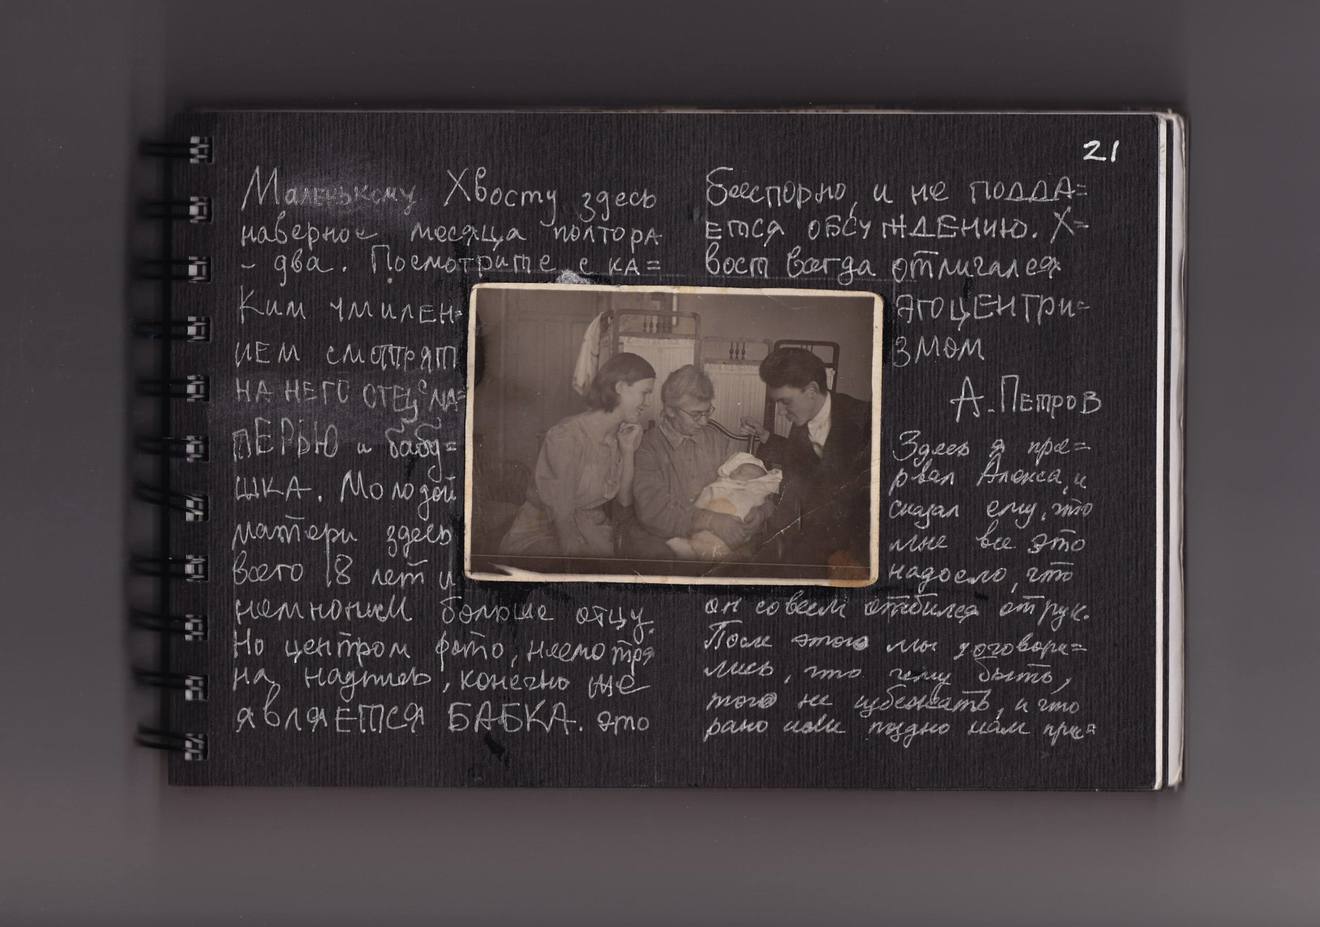 21
Маленькому Хвосту здесь
наверное месяца полтора
- два. Посмотрите с ка=
ким умилен=
ием смотрят
на него отец с ма=
терью и бабу=
шка. Молодой
матери здесь
всего 18 лет и
немногим больше отцу.
Но центром фото, несмотря
на надпись, конечно же
является БАБКА. это
бесспорно, и не подда=
ется обсуждению. Х=
вост всегда отличался
эгоцентри=
змом
А. Петров
Здесь я пре=
рвал Алекса, и
сказал ему, что
мне все это
надоело, что
он совсем отбился от рук.
После этого мы договори=
лись, что чему быть,
того не избежать, и что
рано или поздно нам при=